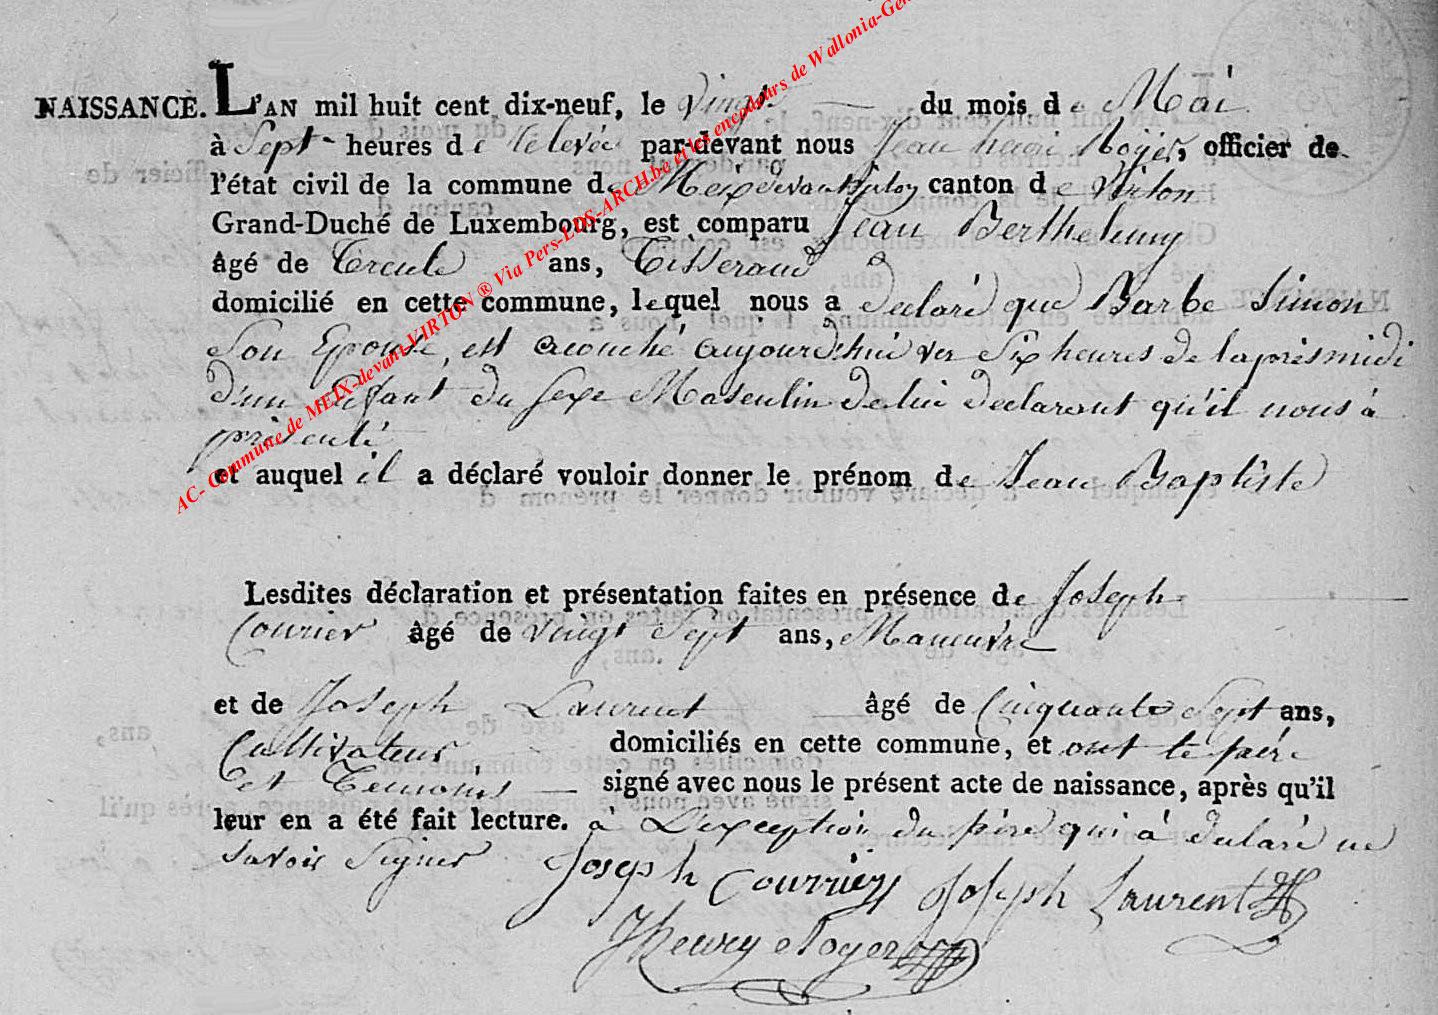 NAISSANCE. L'AN mil huit cent dix-neuf, le vingt du mois de Mai
à Sept heures de relevée par-devant nous Jean henri Noyer, officier de
l'état civil de la commune de Meix devant Virton canton de Virton
Grand-Duché de Luxembourg, est comparu Jean Berthelemy
âgé de trente ans, Tisserand
domicilié en cette commune, lequel nous a declaré que Barbe Simon
Son Epouse, est acouché aujourd'hui ver Six heures de laprès midi
d'un Enfant du sexe Masculin de lui declarant qu'il nous à
présenté
et auquel il a déclaré vouloir donner le prénom de Jean Baptiste
Lesdites déclaration et présentation faites en présence de Joseph
Courier âgé de vingt Sept ans, Maneuvre
et de Joseph Laurent âgé de Cinquante Sept ans,
Cultivateur domiciliés en cette commune, et ont le père
et Temoins signé avec nous le présent acte de naissance, après qu'il
leur en a été fait lecture. à L'exception du père qui à declaré ne
savoir Signer Joseph Courrier Joseph Laurent
JHenry Noyer
AC- Commune de MEIX-devant-VIRTON ® Via Pers-LDS-ARCH.be et les encodeurs de Wallonia-Gen